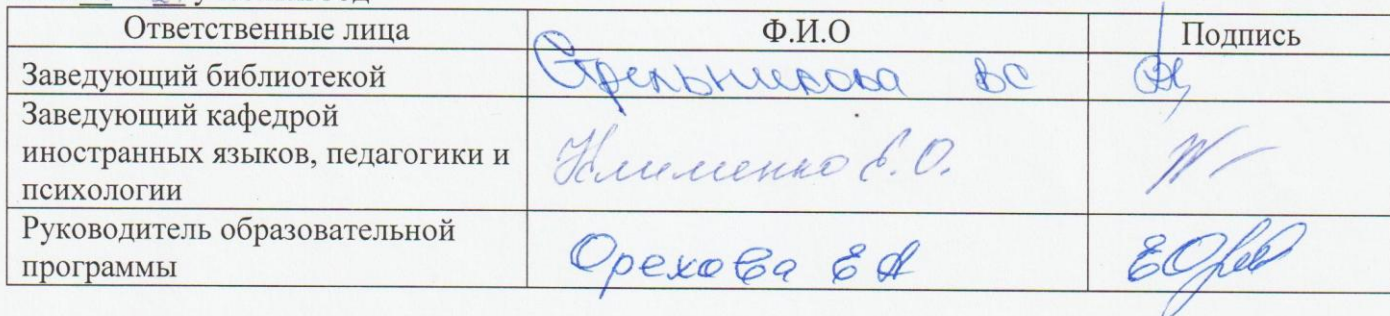 Ответственные лица Ф.И.О Подпись
Заведующий библиотекой Стрельникова ВС
Заведующий кафедрой
иностранных языков, педагогики и
психологии Клименко Е.О.
Руководитель образовательной
программы Орехова ЕА